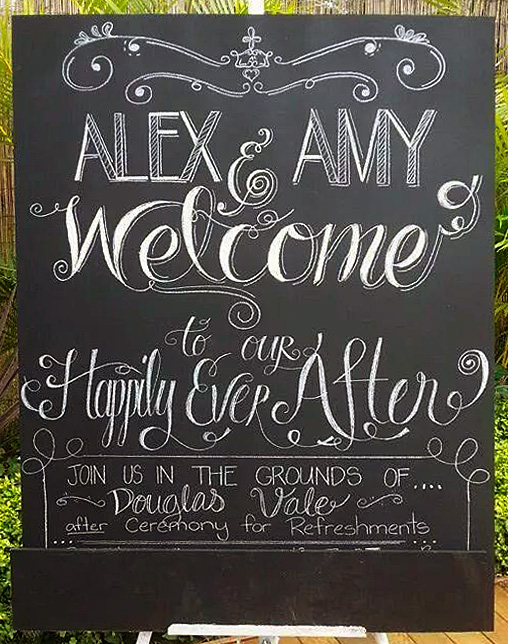 ALEX & AMY
Welcome
to our
Happily Ever After
JOIN US IN THE GROUNDS OF....
Douglas Vale
after Ceremony for Refreshments